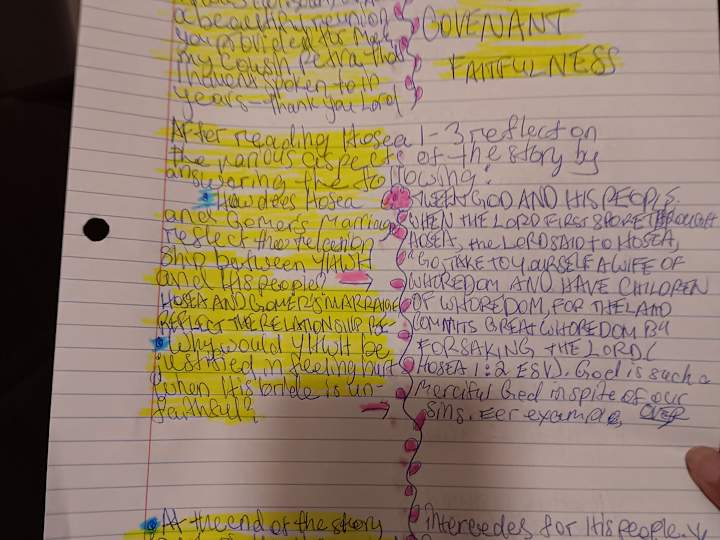 a beautiful reunion
you provided for me &
my cousin Petra that
I havent spoken to in
years - thank you Lord
COVENANT
FAITFULNESS
After reading Hosea 1-3 reflect on
the various aspects of the story by
answering the following:
How does Hosea
and Gomer's Marriage
reflect the relation
ship between YHWH
and His people?
HOSEA AND GOMER'S MARRAIGE
REFLECT THE RELATIONSHIP BE-
TWEEN GOD AND HIS PEOPLE.
WHEN THE LORD FIRST SPOKE THROUGH
HOSEA, the LORD SAID to HOSEA,
"GO, TAKE TO YOURSELF A WIFE OF
WHOREDOM AND HAVE CHILDREN
OF WHOREDOM, FOR THE LAND
COMMITS GREAT WHOREDOM BY
FORSAKING THE LORD(
HOSEA 1:2 ESV). God is such a
Merciful God in spite of our
sins. For example, OVER
Why would YHWH be
justified in feeling hurt
when His bride is un-
faithful?
At the end of the story
intercedes for His people.